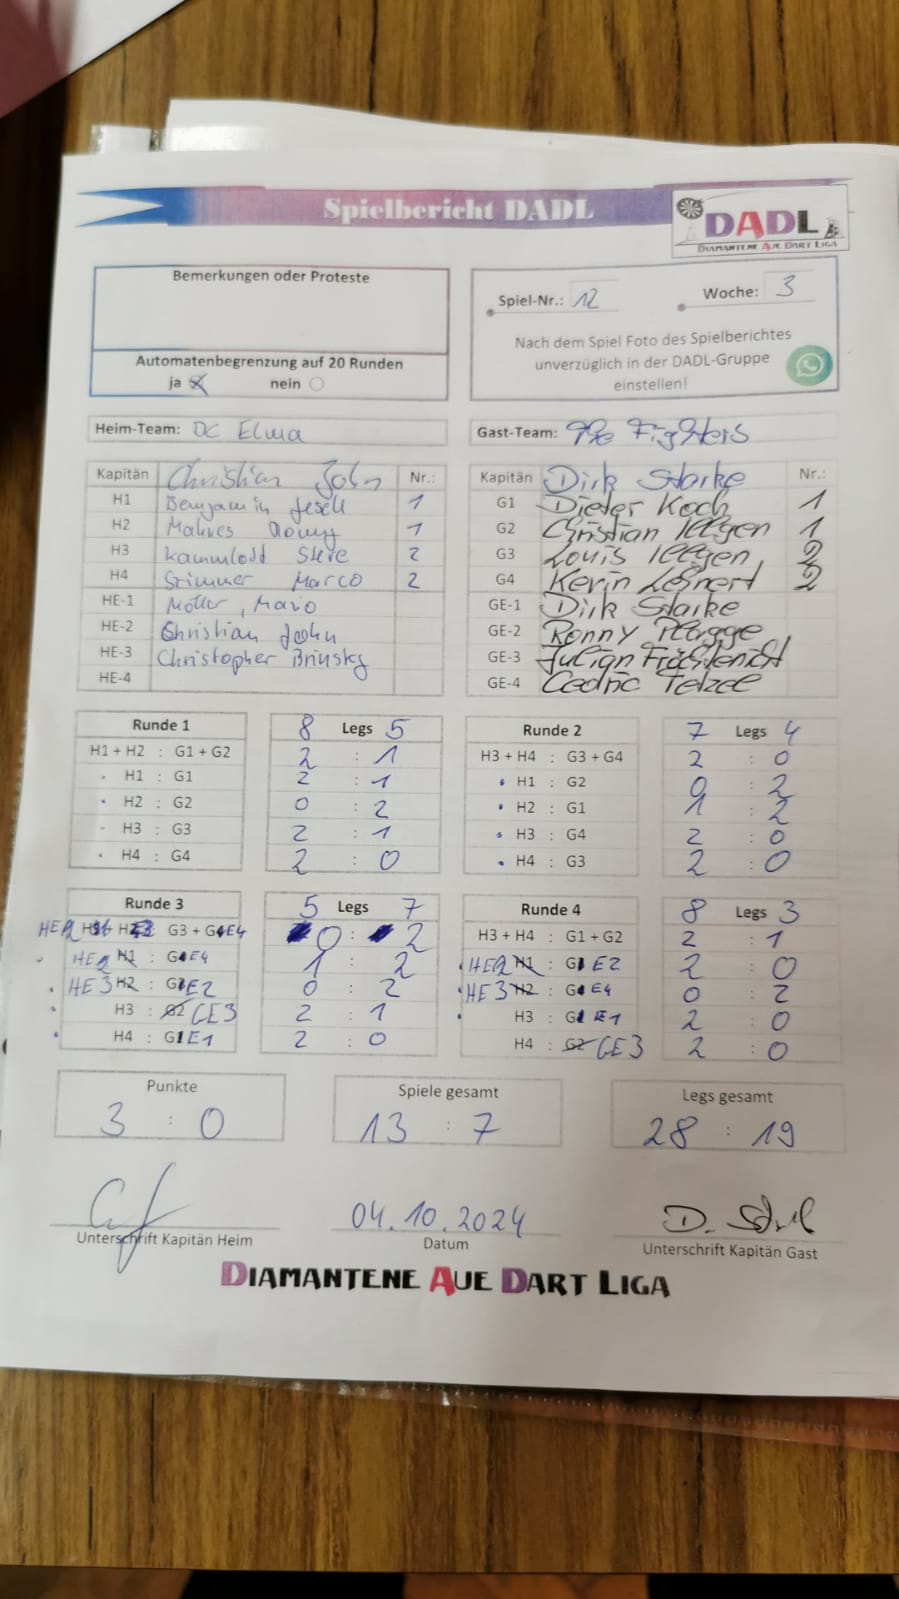 Spielbericht DADL
DADL
DIAMANTENE AUE DART LIGA
Bemerkungen oder Proteste
Automatenbegrenzung auf 20 Runden
ja nein
Spiel-Nr.: 12 Woche: 3
Nach dem Spiel Foto des Spielberichtes
unverzüglich in der DADL-Gruppe
einstellen!
Heim-Team: DC Elma
Gast-Team: Fighters
Kapitän Christian John Nr.:
H1 Benjamin Jesell 1
H2 1
H3 Kammlodt Steve 2
H4 Stimmer Marco 2
HE-1 Möller, Mario
HE-2 Christian John
HE-3 Christopher Brinsky
HE-4
Kapitän Dirk Starke Nr.:
G1 Dieter Koch 1
G2 Christian 1
G3 Louis 2
G4 Kevin 2
GE-1 Dirk Starke
GE-2 Ronny Plagge
GE-3 Julian
GE-4 Cedric Tetzel
Runde 1 8 Legs 5
H1 + H2 : G1 + G2 2 : 1
H1 : G1 2 : 1
H2 : G2 0 : 2
H3 : G3 2 : 1
H4 : G4 2 : 0
Runde 2 7 Legs 4
H3 + H4 : G3 + G4 2 : 0
H1 : G2 0 : 2
H2 : G1 1 : 2
H3 : G4 2 : 0
H4 : G3 2 : 0
Runde 3 5 Legs 7
G3 + GE4 0 : 2
HE2 H1 : GE4 1 : 2
HE3 H2 : GE2 0 : 2
H3 : G2 GE3 2 : 1
H4 : GE1 2 : 0
Runde 4 8 Legs 3
H3 + H4 : G1 + G2 2 : 1
HE2 H1 : GE2 2 : 0
HE3 H2 : GE4 0 : 2
H3 : GE1 2 : 0
H4 : G2 GE3 2 : 0
Punkte
3 : 0
Spiele gesamt
13 : 7
Legs gesamt
28 : 19
04.10.2024
Unterschrift Kapitän Heim
Datum
Unterschrift Kapitän Gast
DIAMANTENE AUE DART LIGA